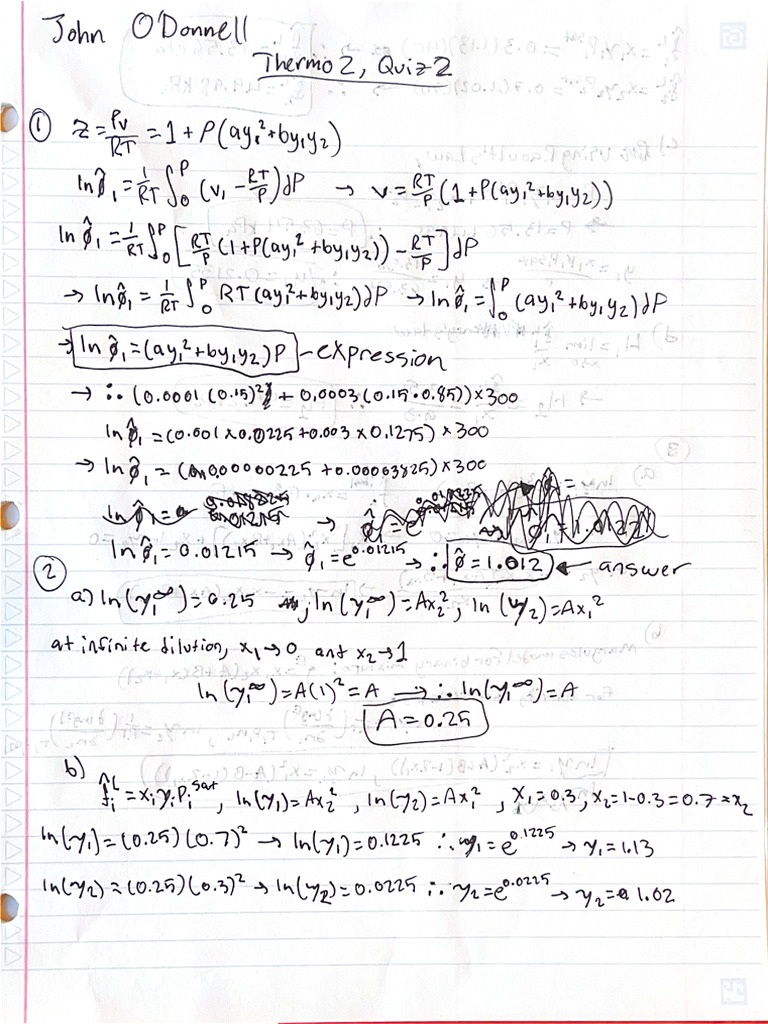 John O'Donnell
Thermo 2, Quiz 2
① Z = Pv/RT = 1 + P(ay₁² + by₁y₂)
ln φ̂₁ = 1/RT ∫₀ᴾ (v₁ - RT/P) dP → v = RT/P (1 + P(ay₁² + by₁y₂))
ln φ̂₁ = 1/RT ∫₀ᴾ [RT/P (1 + P(ay₁² + by₁y₂)) - RT/P] dP
→ ln φ̂₁ = 1/RT ∫₀ᴾ RT(ay₁² + by₁y₂) dP → ln φ̂₁ = ∫₀ᴾ (ay₁² + by₁y₂) dP
→ ln φ̂₁ = (ay₁² + by₁y₂)P - expression
→ ∴ (0.0001 (0.15)² + 0.0003 (0.15 · 0.85)) × 300
ln φ̂₁ = (0.001 × 0.0225 + 0.003 × 0.1275) × 300
→ ln φ̂₁ = (0.00000225 + 0.00003825) × 300
ln φ̂₁ = 0.01215 → φ̂₁ = e^0.01215 → ∴ φ̂ = 1.012 ← answer
② a) ln(γ₁^∞) = 0.25 , ln(γ₁^∞) = Ax₂² , ln(γ₂) = Ax₁²
at infinite dilution, x₁→0 and x₂→1
ln(γ₁^∞) = A(1)² = A → ∴ ln(γ₁^∞) = A
A = 0.25
b)
f̂ᵢᴸ = xᵢγᵢPᵢ^sat , ln(γ₁) = Ax₂² , ln(γ₂) = Ax₁² , x₁ = 0.3 , x₂ = 1 - 0.3 = 0.7 = x₂
ln(γ₁) = (0.25)(0.7)² → ln(γ₁) = 0.1225 ∴ γ₁ = e^0.1225 → γ₁ = 1.13
ln(γ₂) = (0.25)(0.3)² → ln(γ₂) = 0.0225 ∴ γ₂ = e^0.0225 → γ₂ = 1.02